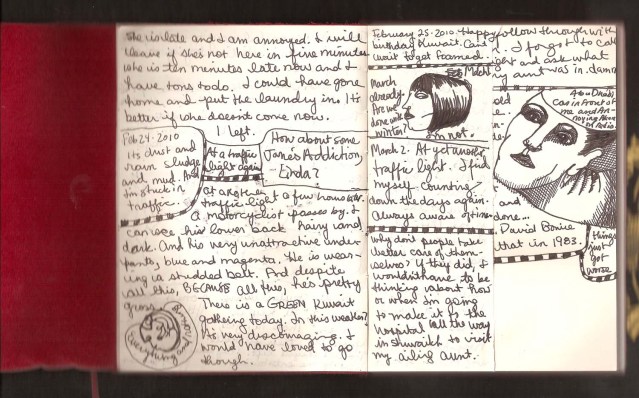 She is late and I am annoyed. I will
leave if she's not here in five minutes
she is ten minutes late now and I
have tons to do. I could have gone
home and put the laundry in. It's
better if she doesn't come now.
I left.
Feb 24. 2010
Its dust and
rain sludge
and mud. And
I'm stuck in
traffic.
At a traffic
light again
How about some
Jane's Addiction,
Enda?
At another
traffic light a few hours later.
A motorcyclist passes by. I
can see his lower back hairy and
dark. And his very unattractive under
pants, blue and magenta. He is wear-
ing a studded belt. And despite
all this, BECAUSE all this, he's pretty
gross.
There is a GREEN Kuwait
gathering today. In this weather?
Its very discouraging. I
would have loved to go
though.
Everything
February 25. 2010. Happy
birthday Kuwait. Can't
wait to get framed.
March
already.
Are we
done with
winter?
I'm not.
March 2. At yet another
traffic light. I find
myself counting
down the days again.
Always aware of time.
Why don't people take
better care of them-
selves? If they did, I
wouldn't have to be
thinking about how
or when I'm going
to make it to the
hospital all the way
in Shuwaikh to visit
my ailing aunt.
follow through with
I forgot to call
and ask what
my aunt was in.
old
Car in front of
me and
radio.
and
done...
David Bowie
that in 1983.
things
just
got
worse